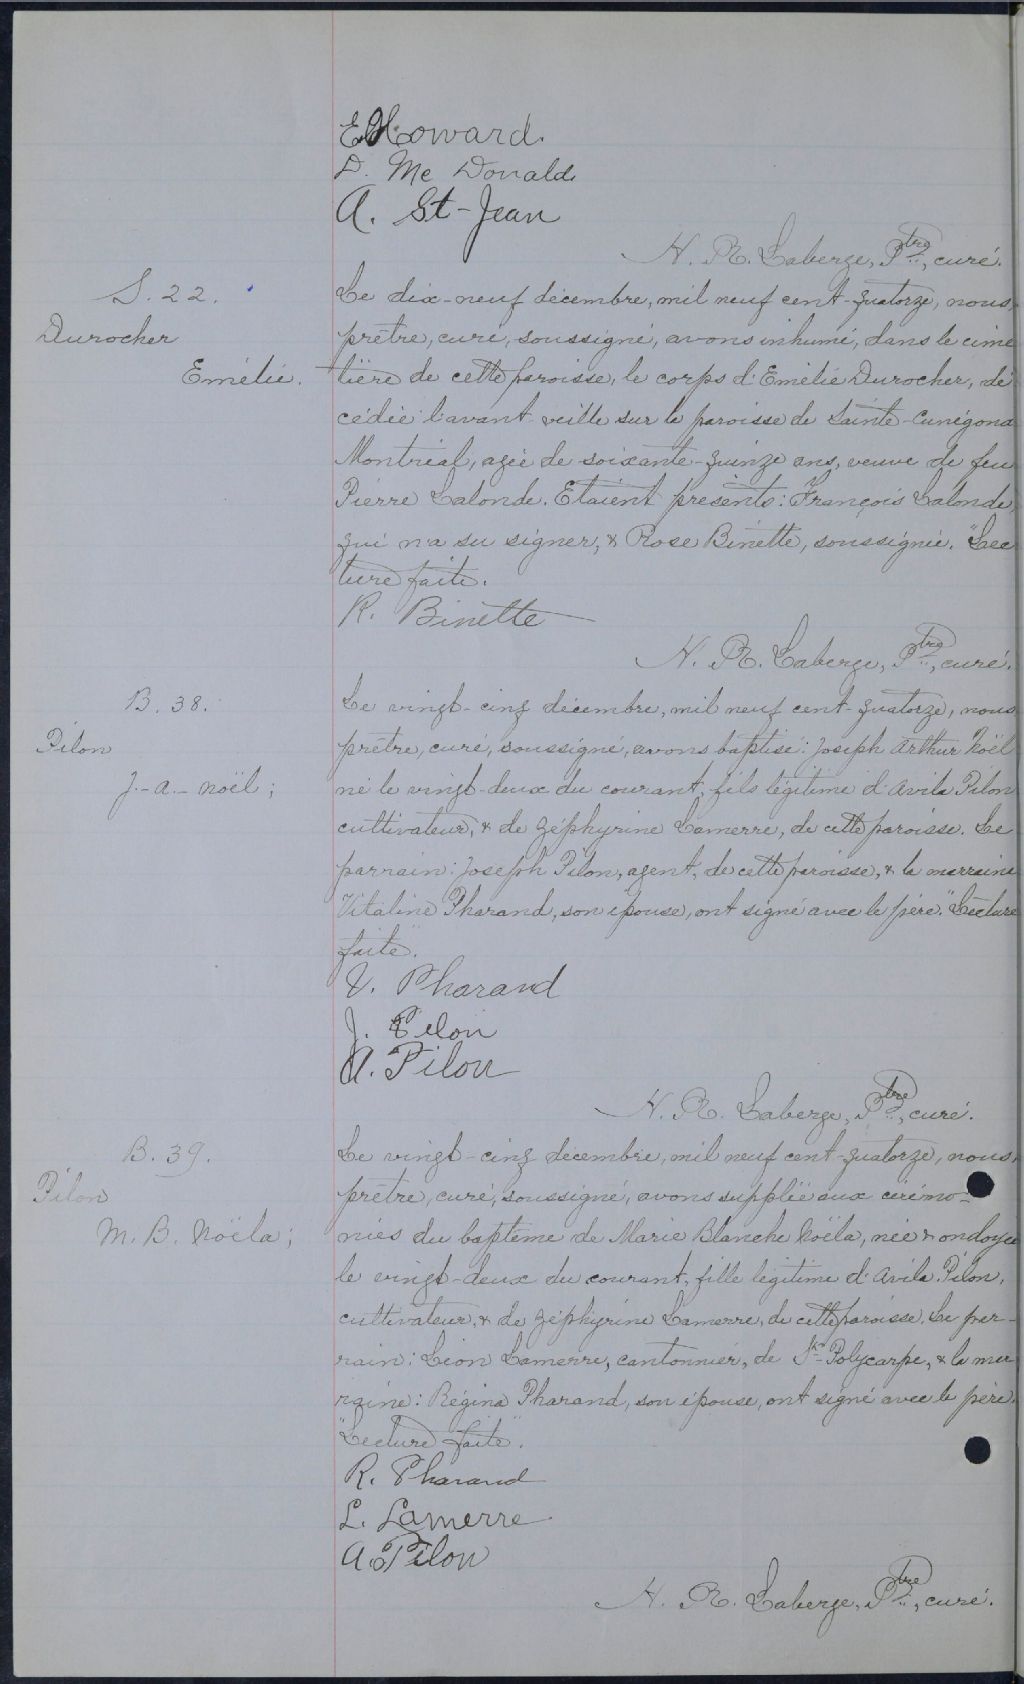 E. Howard.
D. Mc Donald
A. St-Jean
H. R. Laberge, Ptre, curé.
S. 22.
Durocher
Emélie.
Le dix-neuf décembre, mil neuf cent-quatorze, nous,
prêtre, curé, soussigné, avons inhumé, dans le cime
tière de cette paroisse, le corps d'Emélie Durocher, dé
cédée l'avant veille sur la paroisse de Sainte-Cunégond
Montréal, agée de soixante-quinze ans, veuve de feu
Pierre Lalonde. Etaient présents: François Lalonde,
qui n'a su signer, & Rose Binette, soussignée. "Lec
ture faite.
R. Binette
H. R. Laberge, Ptre, curé.
B. 38.
Pilon
J.-A.-Noël;
Le vingt-cinq décembre, mil neuf cent-quatorze, nous
prêtre, curé, soussigné, avons baptisé: Joseph Arthur Noël
né le vingt-deux du courant, fils légitime d'Avila Pilon
cultivateur, & de Zéphyrine Lamerre, de cette paroisse. Le
parrain: Joseph Pilon, agent, de cette paroisse, & la marraine
Vitaline Pharand, son épouse, ont signé avec le père. "Lecture
faite".
V. Pharand
J. Pilon
A. Pilon
H. R. Laberge, Ptre, curé.
B. 39.
Pilon
M. B. Noëla;
Le vingt-cinq décembre, mil neuf cent-quatorze, nous,
prêtre, curé, soussigné, avons supplée aux cérémo-
nies du baptême de Marie Blanche Noëla, née & ondoyée
le vingt-deux du courant, fille légitime d'Avila Pilon,
cultivateur, & de Zéphyrine Lamerre, de cette paroisse. Le par-
rain: Léon Lamerre, cantonnier, de St-Polycarpe, & la mar
raine: Régina Pharand, son épouse, ont signé avec le père.
"Lecture faite".
R. Pharand
L. Lamerre
A. Pilon
H. R. Laberge, Ptre, curé.